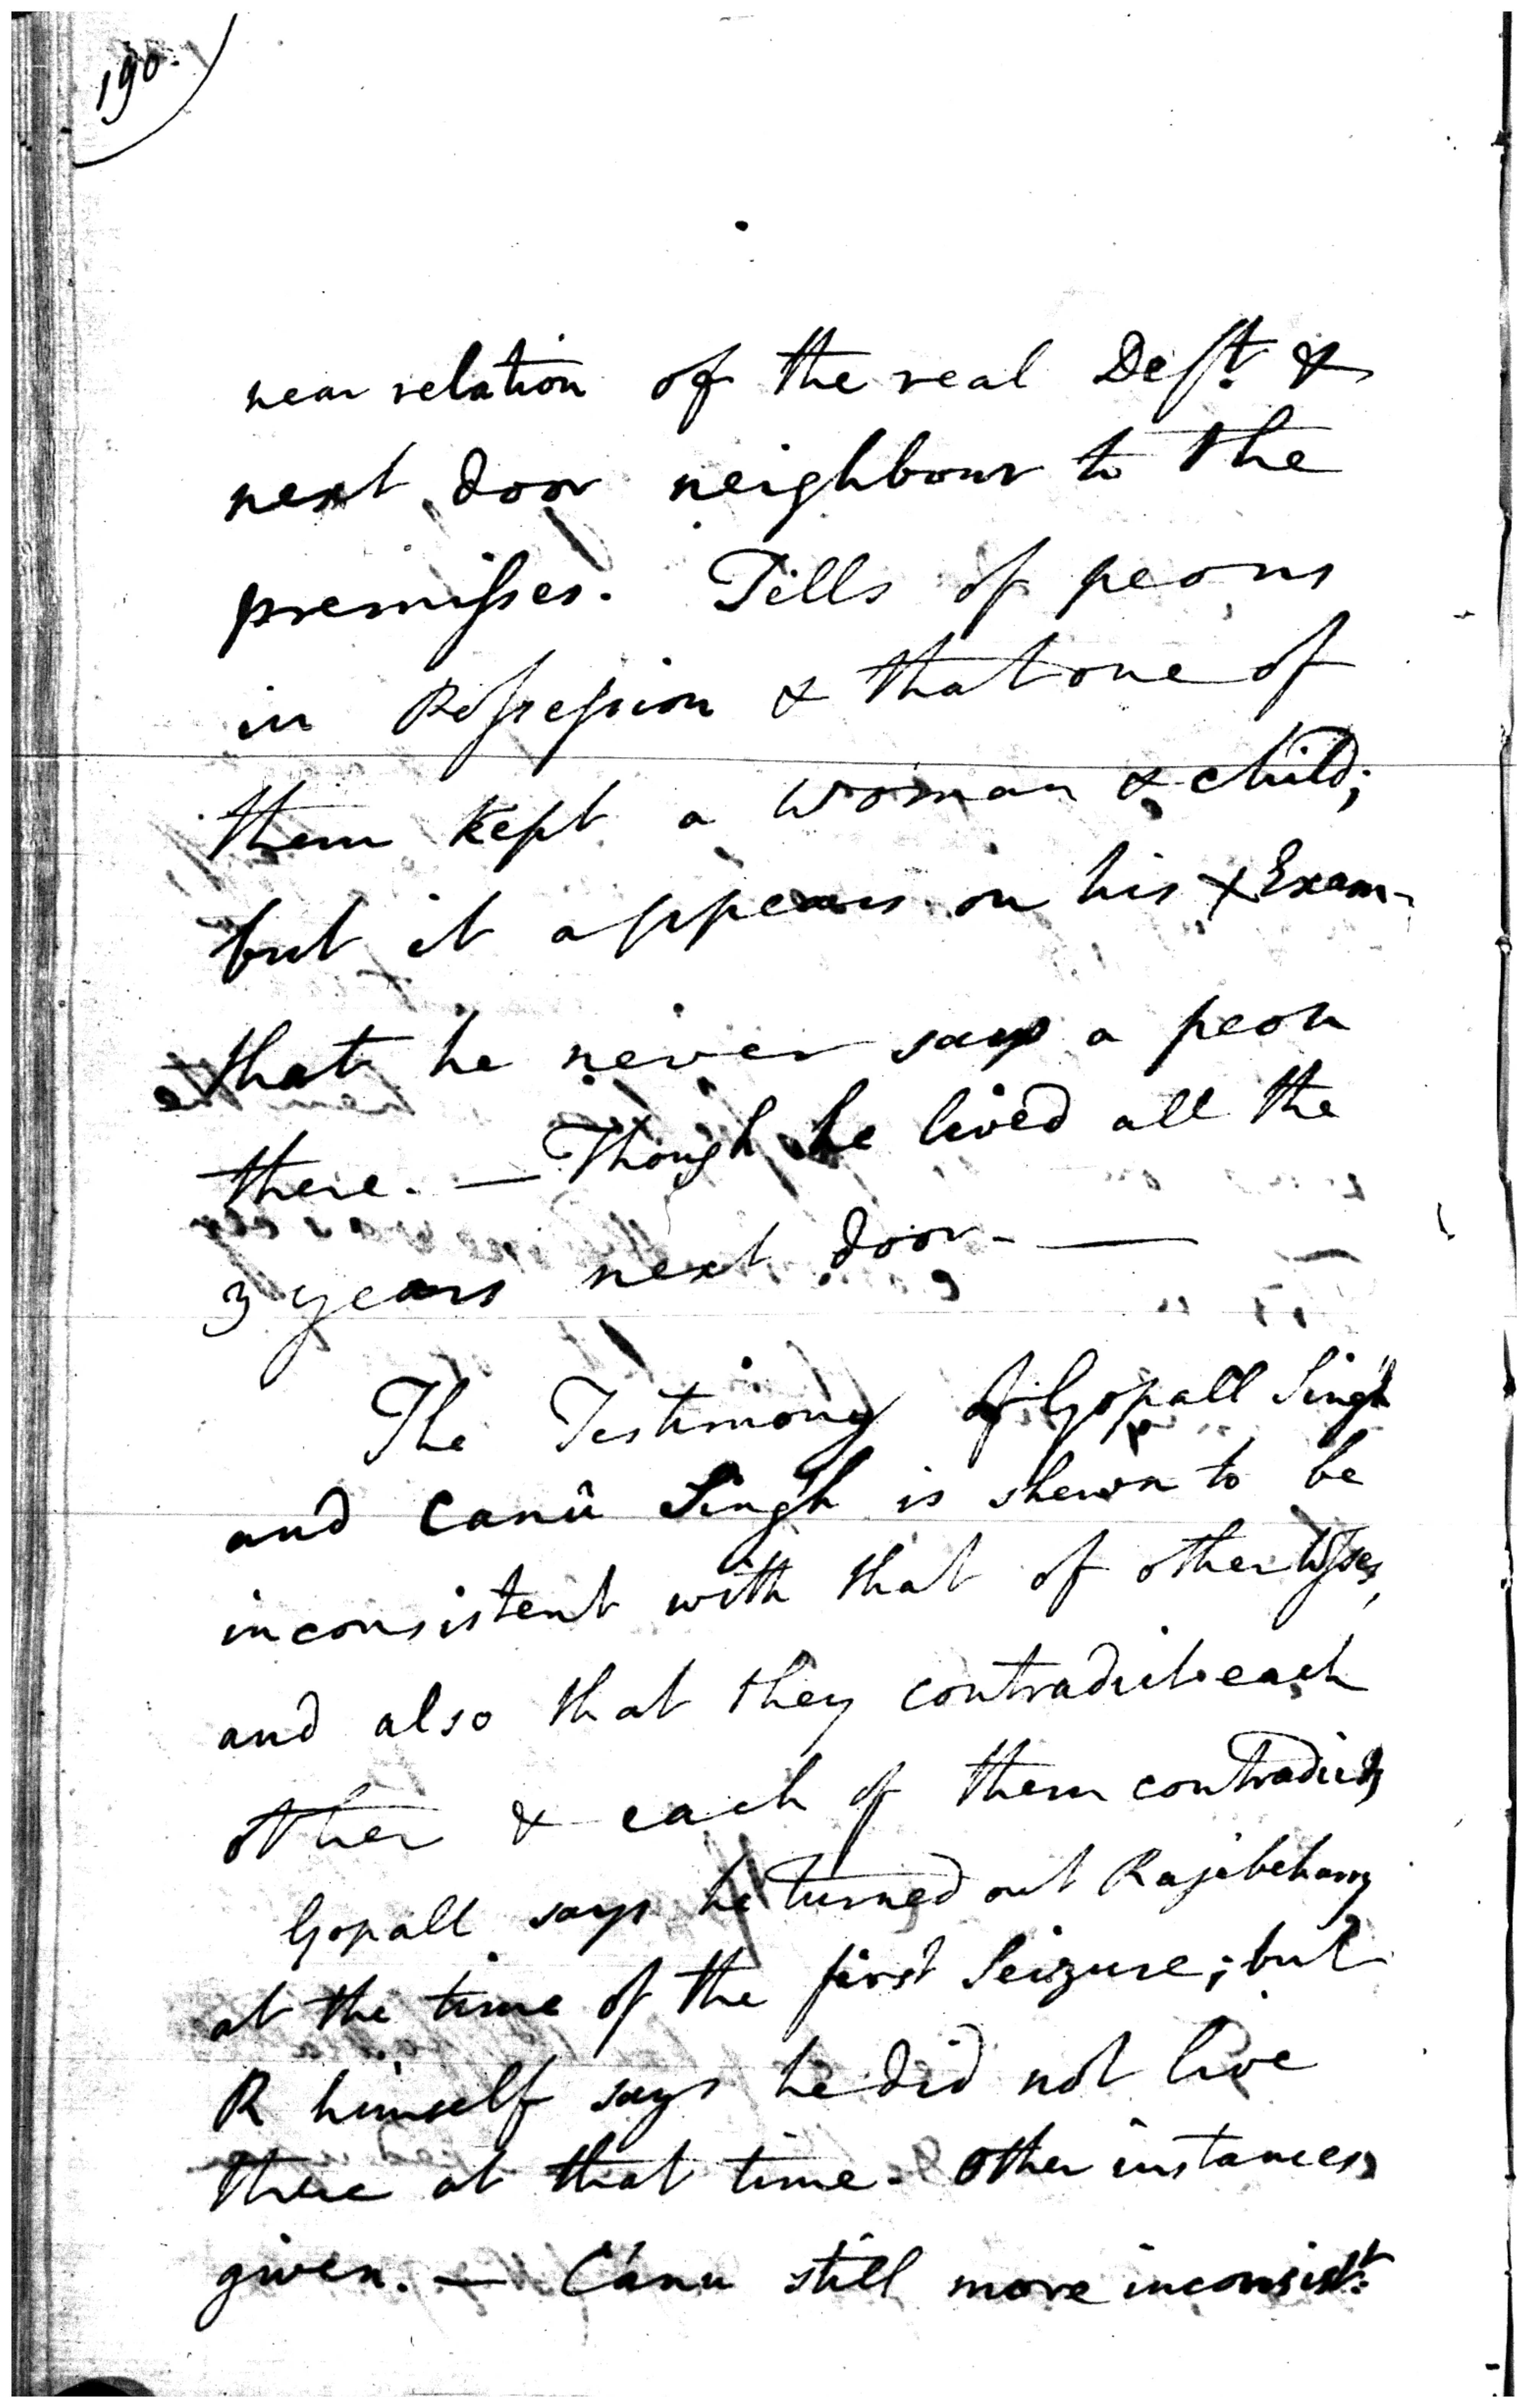 190.
near relation of the real Deft. &
next door neighbour to the
premisses. Tells of peons
in Possession & that one of
them kept a woman & child;
but it appears on his X Exam-
that he never saw a peon
there. — Though he lived all the
3 years next door. —
The Testimony of Gopall Singh
and Canû Singh is shewn to be
inconsistent with that of other Wsses,
and also that they contradict each
other & each of them contradicts
Gopall says he turned out Rajebehary
at the time of the first Seizure; but
R himself says he did not live
there at that time. Other instances
given. — Cánu still more inconsistt.